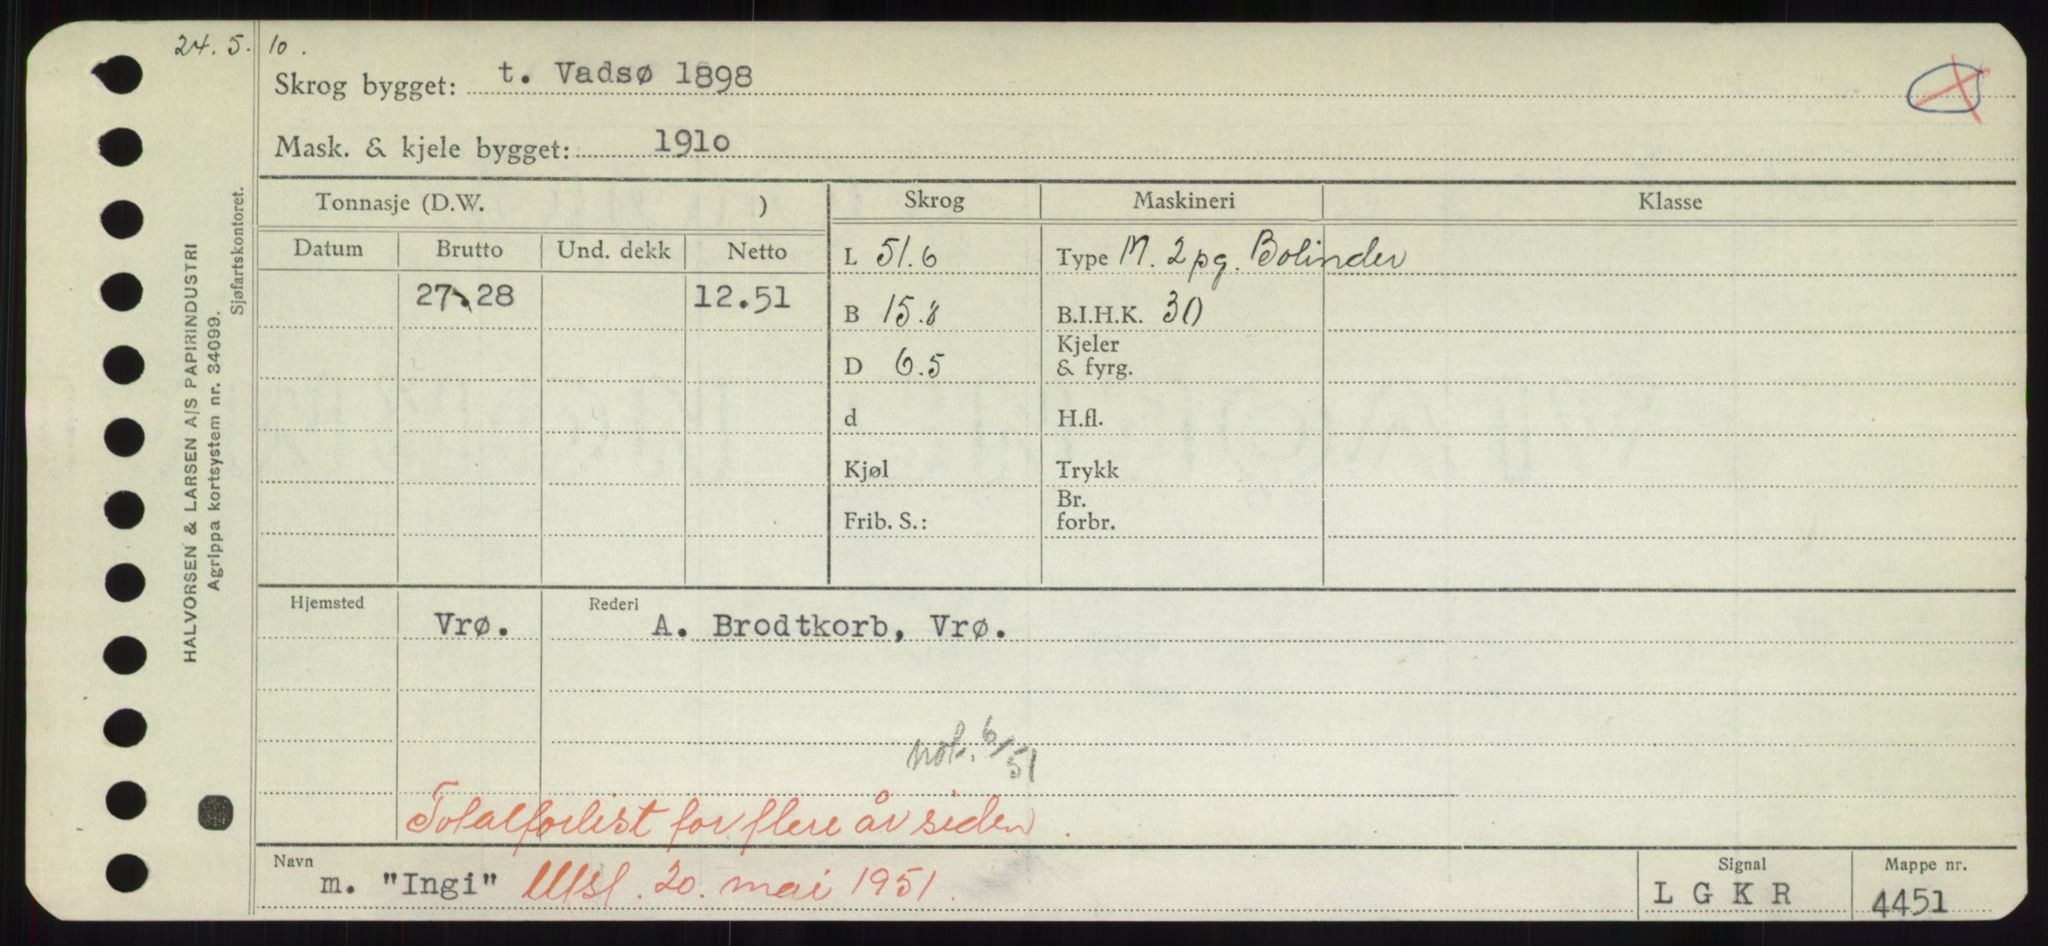 24. 5. 10.
Skrog bygget: t. Vadsø 1898
Mask. & kjele bygget: 191o
Tonnasje (D.W. ) Skrog Maskineri Klasse
Datum Brutto Und. dekk Netto
L 51.6 Type M. 2 pg. Bolinder
27.28 12.51
B 15.8 B.I.H.K. 30
D 6.5 Kjeler & fyrg.
d H.fl.
Kjøl Trykk
Frib. S.: Br. forbr.
Hjemsted Vrø. Rederi A. Brodtkorb, Vrø.
not. 6/51
Totalforlist for flere år siden.
Navn m. "Ingi" Utsl. 20. mai 1951.
Signal L G K R
Mappe nr. 4451
HALVORSEN & LARSEN A/S PAPIRINDUSTRI
Agrippa kortsystem nr. 34099.
Sjøfartskontoret.